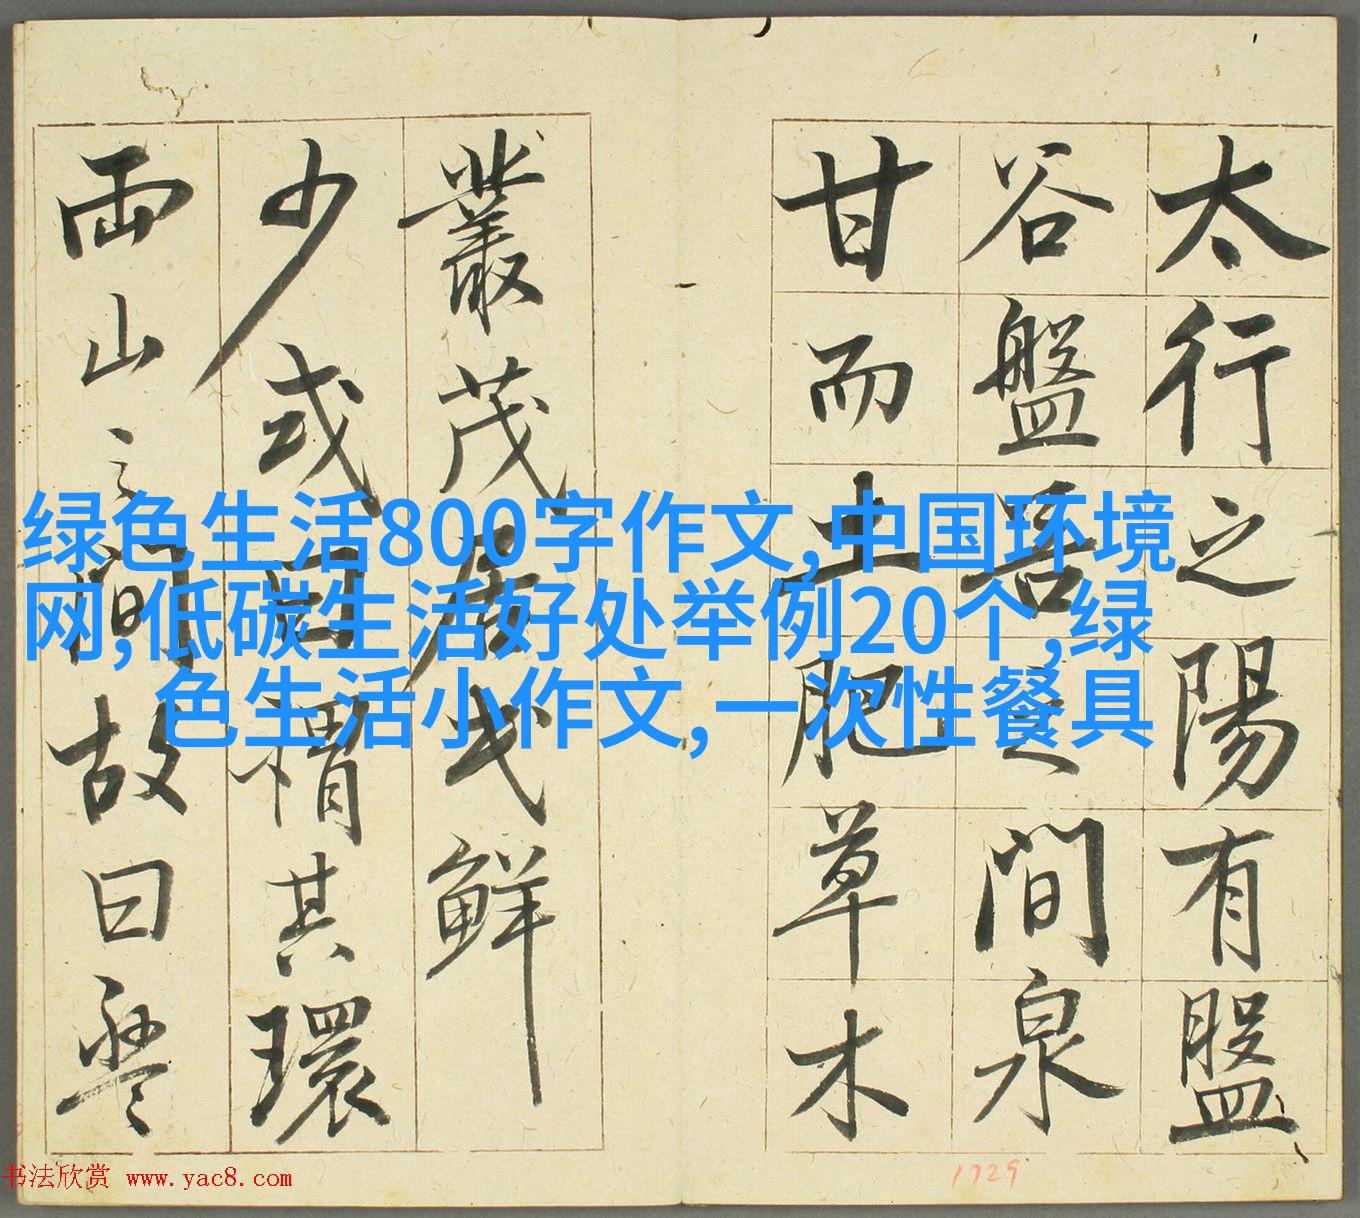 太行之陽有盤
谷盤谷之間泉
甘而土肥草木
叢茂居民鮮
少或曰謂其環
兩山之間故曰盤
绿色生活800字作文,中国环境
网,低碳生活好处举例20个,绿
色生活小作文,一次性餐具
书法欣赏 www.yac8.com
1729